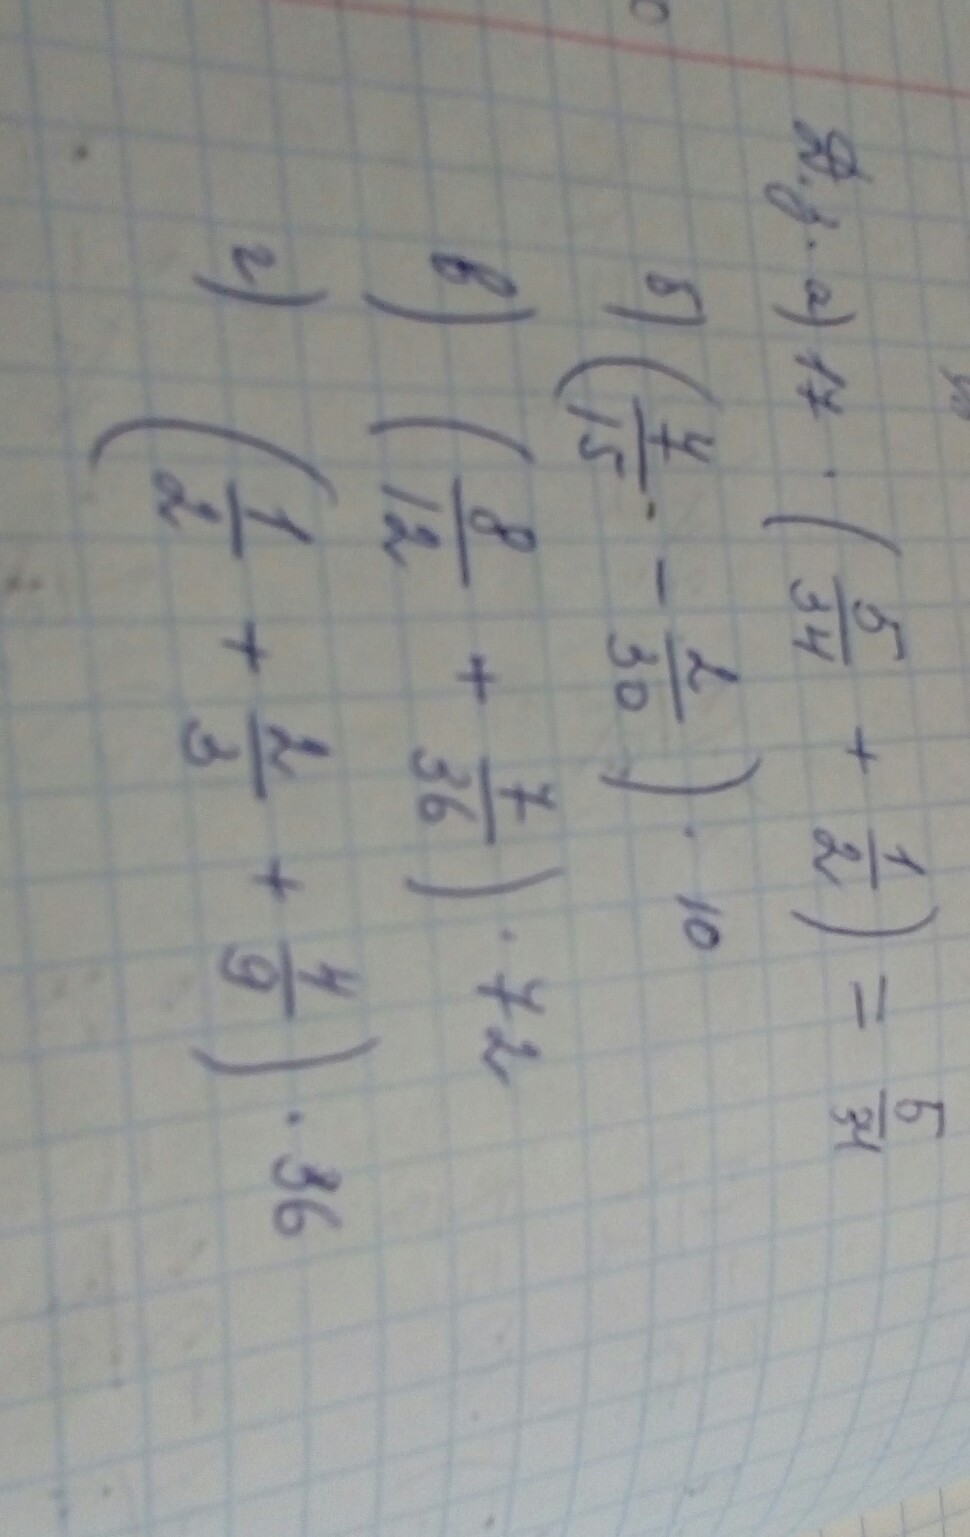 Д.з. а) 17 · (5/34 + 1/2) = 5/34
б) (4/15 - 2/30) · 10
в) (8/12 + 7/36) · 72
г) (1/2 + 2/3 + 4/9) · 36